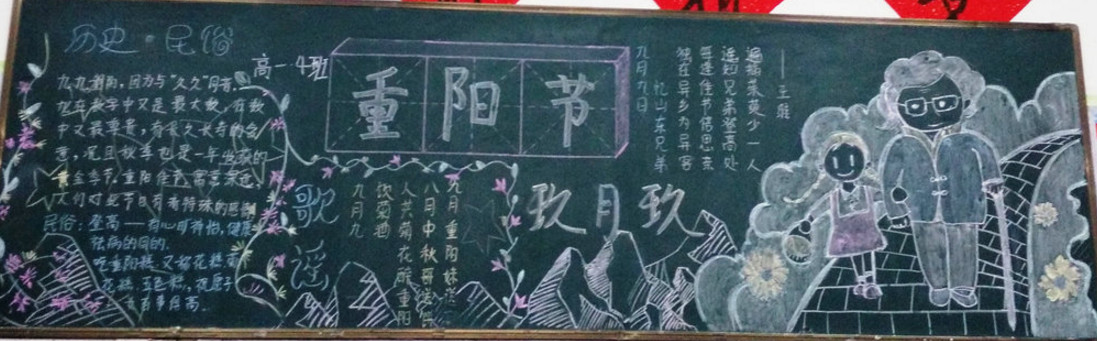 历史·民俗
高一4班
九九重阳，因为与"久久"同音，
九在数字中又是最大数，有数
中又最尊贵，有长久长寿的含
意，况且秋季也是一年收获的
黄金季节，重阳佳节，寓意深远，
人们对此节日有着特殊的感
民俗：登高——有心旷神怡，健康
祛病的目的。
吃重阳糕，又称花糕
花糕，五色糕，
百事俱高。
重阳节
歌谣
九月重阳
八月中秋
人共菊花醉重阳
饮菊酒
九月九
玖月玖
九月九日忆山东兄弟
独在异乡为异客
每逢佳节倍思亲
遥知兄弟登高处
遍插茱萸少一人
——王维